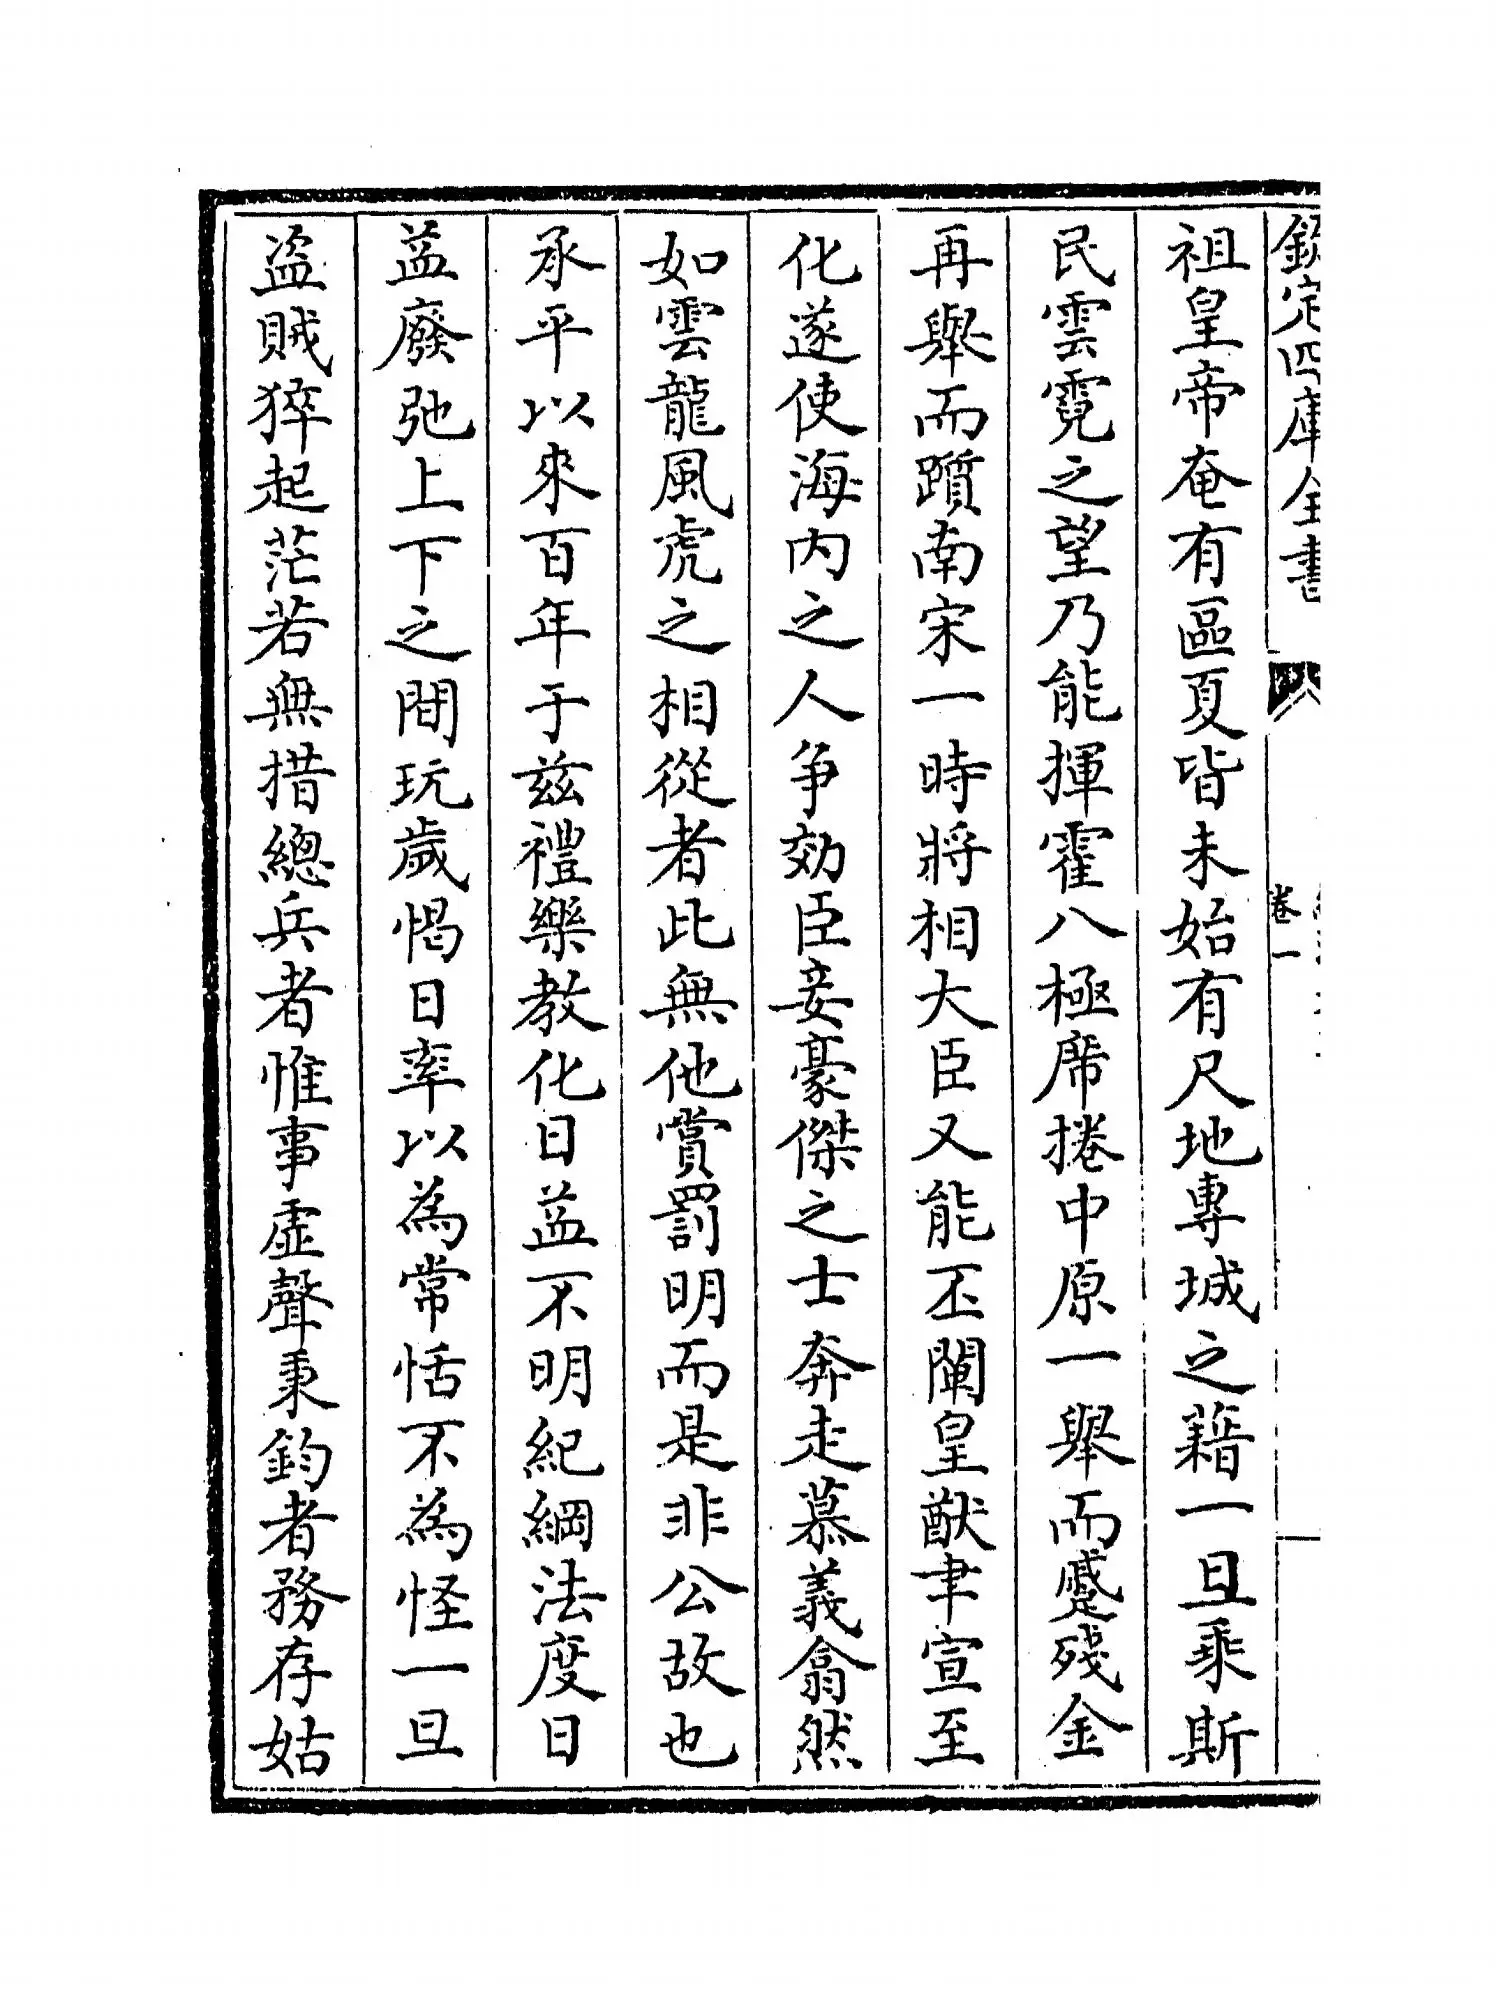 欽定四庫全書
卷一
祖皇帝奄有區夏皆未始有尺地專城之藉一旦乘斯
民雲霓之望乃能揮霍八極席捲中原一舉而蹙殘金
再舉而躓南宋一時將相大臣又能丕闡皇猷聿宣至
化遂使海内之人争効臣妾豪傑之士奔走慕義翕然
如雲龍風虎之相從者此無他賞罰明而是非公故也
承平以來百年于兹禮樂教化日益不明紀綱法度日
益廢弛上下之間玩歲愒日率以為常恬不為怪一旦
盗賊猝起茫若無措總兵者惟事虚聲秉鈞者務存姑